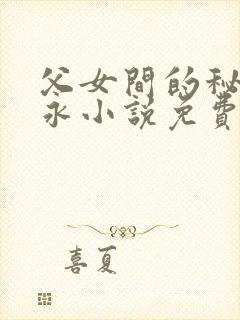 父女間的秘
永小説免費
喜夏